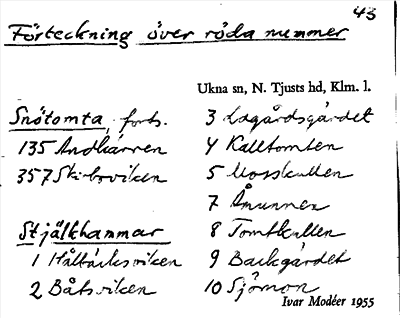 43
Förteckning över röda nummer
Ukna sn, N. Tjusts hd, Klm. l.
Snötomta, forts.
135 Andkärren
357 Skirboviken
Stjälkhammar
1 Håltäcksviken
2 Båtsviken
3 Ladgårdsgärdet
4 Kalltomten
5 Mosskullen
7 Åmunnen
8 Tomtkullen
9 Backgärdet
10 Sjömon
Ivar Modéer 1955